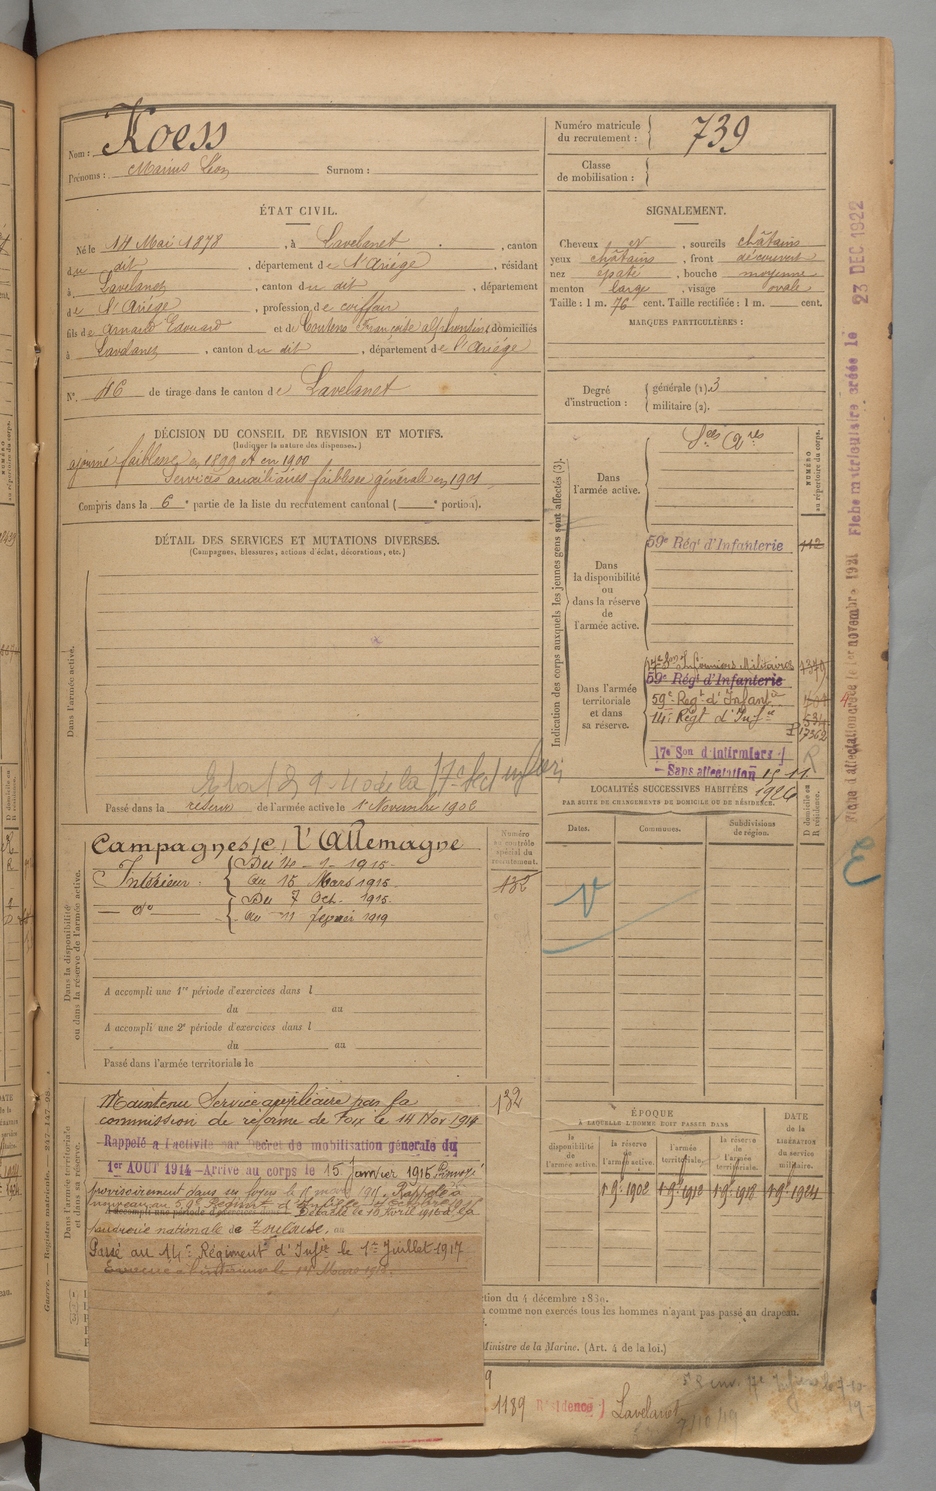 Nom : Koess
Prénoms : Marius Léon Surnom :
Numéro matricule du recrutement : 739
Classe de mobilisation :
ÉTAT CIVIL.
Né le 14 Mai 1878, à Lavelanet, canton
du dit, département de l'Ariége, résidant
à Lavelanet, canton du dit, département
de l'Ariége, profession de coiffeur
fils de Arnaud Edouard et de Couteno Françoise alphonsine domiciliés
à Lavelanet, canton du dit, département de l'Ariége
N° 46 de tirage dans le canton de Lavelanet
SIGNALEMENT.
Cheveux et, sourcils châtains
yeux châtains, front découvert
nez épaté, bouche moyenne
menton large, visage ovale
Taille : 1 m. 76 cent. Taille rectifiée : 1 m. cent.
MARQUES PARTICULIÈRES :
Degré d'instruction : générale (1). 3
militaire (2).
DÉCISION DU CONSEIL DE REVISION ET MOTIFS.
(Indiquer la nature des dispenses.)
ajourné faiblesse en 1899 et en 1900
Services auxiliaires faiblesse générale en 1901
Compris dans la 6e partie de la liste du recrutement cantonal ( e portion).
DÉTAIL DES SERVICES ET MUTATIONS DIVERSES.
(Campagnes, blessures, actions d'éclat, décorations, etc.)
Dans l'armée active.
Passé dans la réserve de l'armée active le 1er Novembre 1902
Indication des corps auxquels les jeunes gens sont affectés (3).
NUMÉRO au répertoire du corps.
Dans l'armée active.
Dans la disponibilité ou dans la réserve de l'armée active.
59e Régt d'Infanterie 112
Dans l'armée territoriale et dans sa réserve.
17e Son Infirmiers Militaires 1379
59e Régt d'Infanterie
59e Regt d'Infantie
14e Régt d'Infie
17362
17e Son d'Infirmiers
Sans affectation 15.11.1926
LOCALITÉS SUCCESSIVES HABITÉES
PAR SUITE DE CHANGEMENTS DE DOMICILE OU DE RÉSIDENCE.
Dates. Communes. Subdivisions de région. D domicile ou R résidence.
Dans la disponibilité ou dans la réserve de l'armée active.
Numéro au contrôle spécial du recrutement.
132
Campagnes c/ l'Allemagne
Intérieur : Du 14 - 1 - 1915
au 15 Mars 1915
— do — Du 7 Oct. 1915
au 11 février 1919
A accompli une 1re période d'exercices dans l
du au
A accompli une 2e période d'exercices dans l
du au
Passé dans l'armée territoriale le
Dans l'armée territoriale et dans sa réserve.
Maintenu Service auxiliaire par la 132
commission de réforme de Foix le 14 Nov 1914
Rappelé à l'activité par Décret de mobilisation générale du
1er AOUT 1914 – Arrive au corps le 15 Janvier 1915. Renvoyé
provisoirement dans ses foyers le
poudrerie nationale de Toulouse.
Passé au 14e Régiment d'Infie le 1er Juillet 1917
ÉPOQUE
A LAQUELLE L'HOMME DOIT PASSER DANS
la disponibilité de l'armée active. la réserve de l'armée active. l'armée territoriale. la réserve de l'armée territoriale.
DATE de la LIBÉRATION du service militaire.
1 9e 1902 1 9e 1912 1 9e 1918 1 9e 1924
ction du 4 décembre 1830.
comme non exercés tous les hommes n'ayant pas passé au drapeau.
Ministre de la Marine. (Art. 4 de la loi.)
1189 Résidence Lavelanet
7/10/19
Fiche d'affectation créée le 1er novembre 1921
Fiche matriculaire créée le 23 DEC 1922